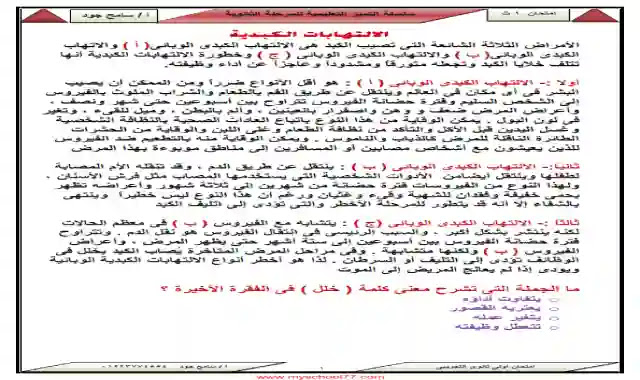 امتحان ١ ث
سلسلة التميز التعليمية للمرحلة الثانوية
أ / سامح جود
الالتهابات الكبدية
الأمراض الثلاثة الشائعة التى تصيب الكبد هى الالتهاب الكبدى الوبائى ( أ ) والالتهاب
الكبدى الوبائى ( ب ) والالتهاب الكبدى الوبائى ( ج ) وخطورة الالتهابات الكبدية أنها
تتلف خلايا الكبد وتجعله متورمًا ومشدودًا وعاجزًا عن أداء وظيفته.
أولا :- الالتهاب الكبدى الوبائى ( أ ) : هو أقل الأنواع ضررًا ومن الممكن أن يصيب
البشر فى أى مكان فى العالم وينتقل عن طريق الفم بالطعام والشراب الملوث بالفيروس
إلى الشخص السليم وفترة حضانة الفيروس تتراوح بين أسبوعين حتى شهر ونصف ،
وأعراض المرض ضعف و وهن واصفرار بالعينين ، وألم بالبطن ، وميل للقىء ، وتغير
فى لون البول . يمكن الوقاية من هذا النوع باتباع العادات الصحية بالنظافة الشخصية
وغسل اليدين قبل الأكل والتأكد من نظافة الطعام وغلى اللبن والوقاية من الحشرات
الطائرة الناقلة للمرض كالذباب والناموس . ويمكن الوقاية منا بالتطعيم ضد الفيروس
للذين يعيشون مع أشخاص مصابين أو المسافرين إلى مناطق موبوءة بهذا المرض.
ثانيا:- الالتهاب الكبدى الوبائى ( ب ) : ينتقل عن طريق الدم ، وقد تنقله الأم المصابة
لطفلها وينتقل أيضامن الأدوات الشخصية التى يستخدمها المصاب مثل فرش الأسنان .
ولهذا النوع من الفيروسات فترة حضانة من شهرين إلى ثلاثة شهور وأعراضه تظهر
بحمى خفيفة وفقدان للشهية وقىء وغثيان ورغم أن هذا النوع ليس خطيراً وينتهى
بالشفاء إلا أنه قد يتطور للمرحلة الأخطر والتى تؤدى إلى تليف الكبد
ثالثًا :- الالتهاب الكبدى الوبائى ( ج ) : يتشابه مع الفيروس ( ب ) فى معظم الحالات
لكنه ينتشر بشكل أكبر ، والسبب الرئيسى فى انتقال الفيروس هو نقل الدم . وتتراوح
فترة حضانة الفيروس بين أسبوعين إلى ستة أشهر حتى يظهر المرض ، وأعراض
الفيروس ( ب ) ولكنها متشابهة . وفى مراحل المرض المتأخرة يُصاب الكبد بخلل فى
الوظائف تؤدى إلى التليف أو السرطان . لذا هو أخطر أنواع الالتهابات الكبدية الوبائية
ويودى إذا لم يعالج المريض إلى الموت
ما الجملة التى تشرح معنى كلمة ( خلل ) فى الفقرة الأخيرة ؟
يتفاوت أداؤه
يعتريه القصور
يتغير عمله
تتعطل وظيفته
امتحان أولى ثانوى التجريبى
١
أ / سامح جود
www.myschool77.com